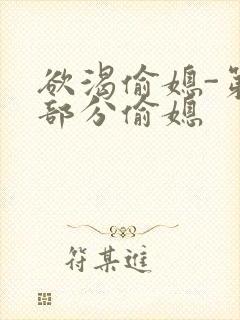 欲渴偷媳-第
部分偷媳
符某進